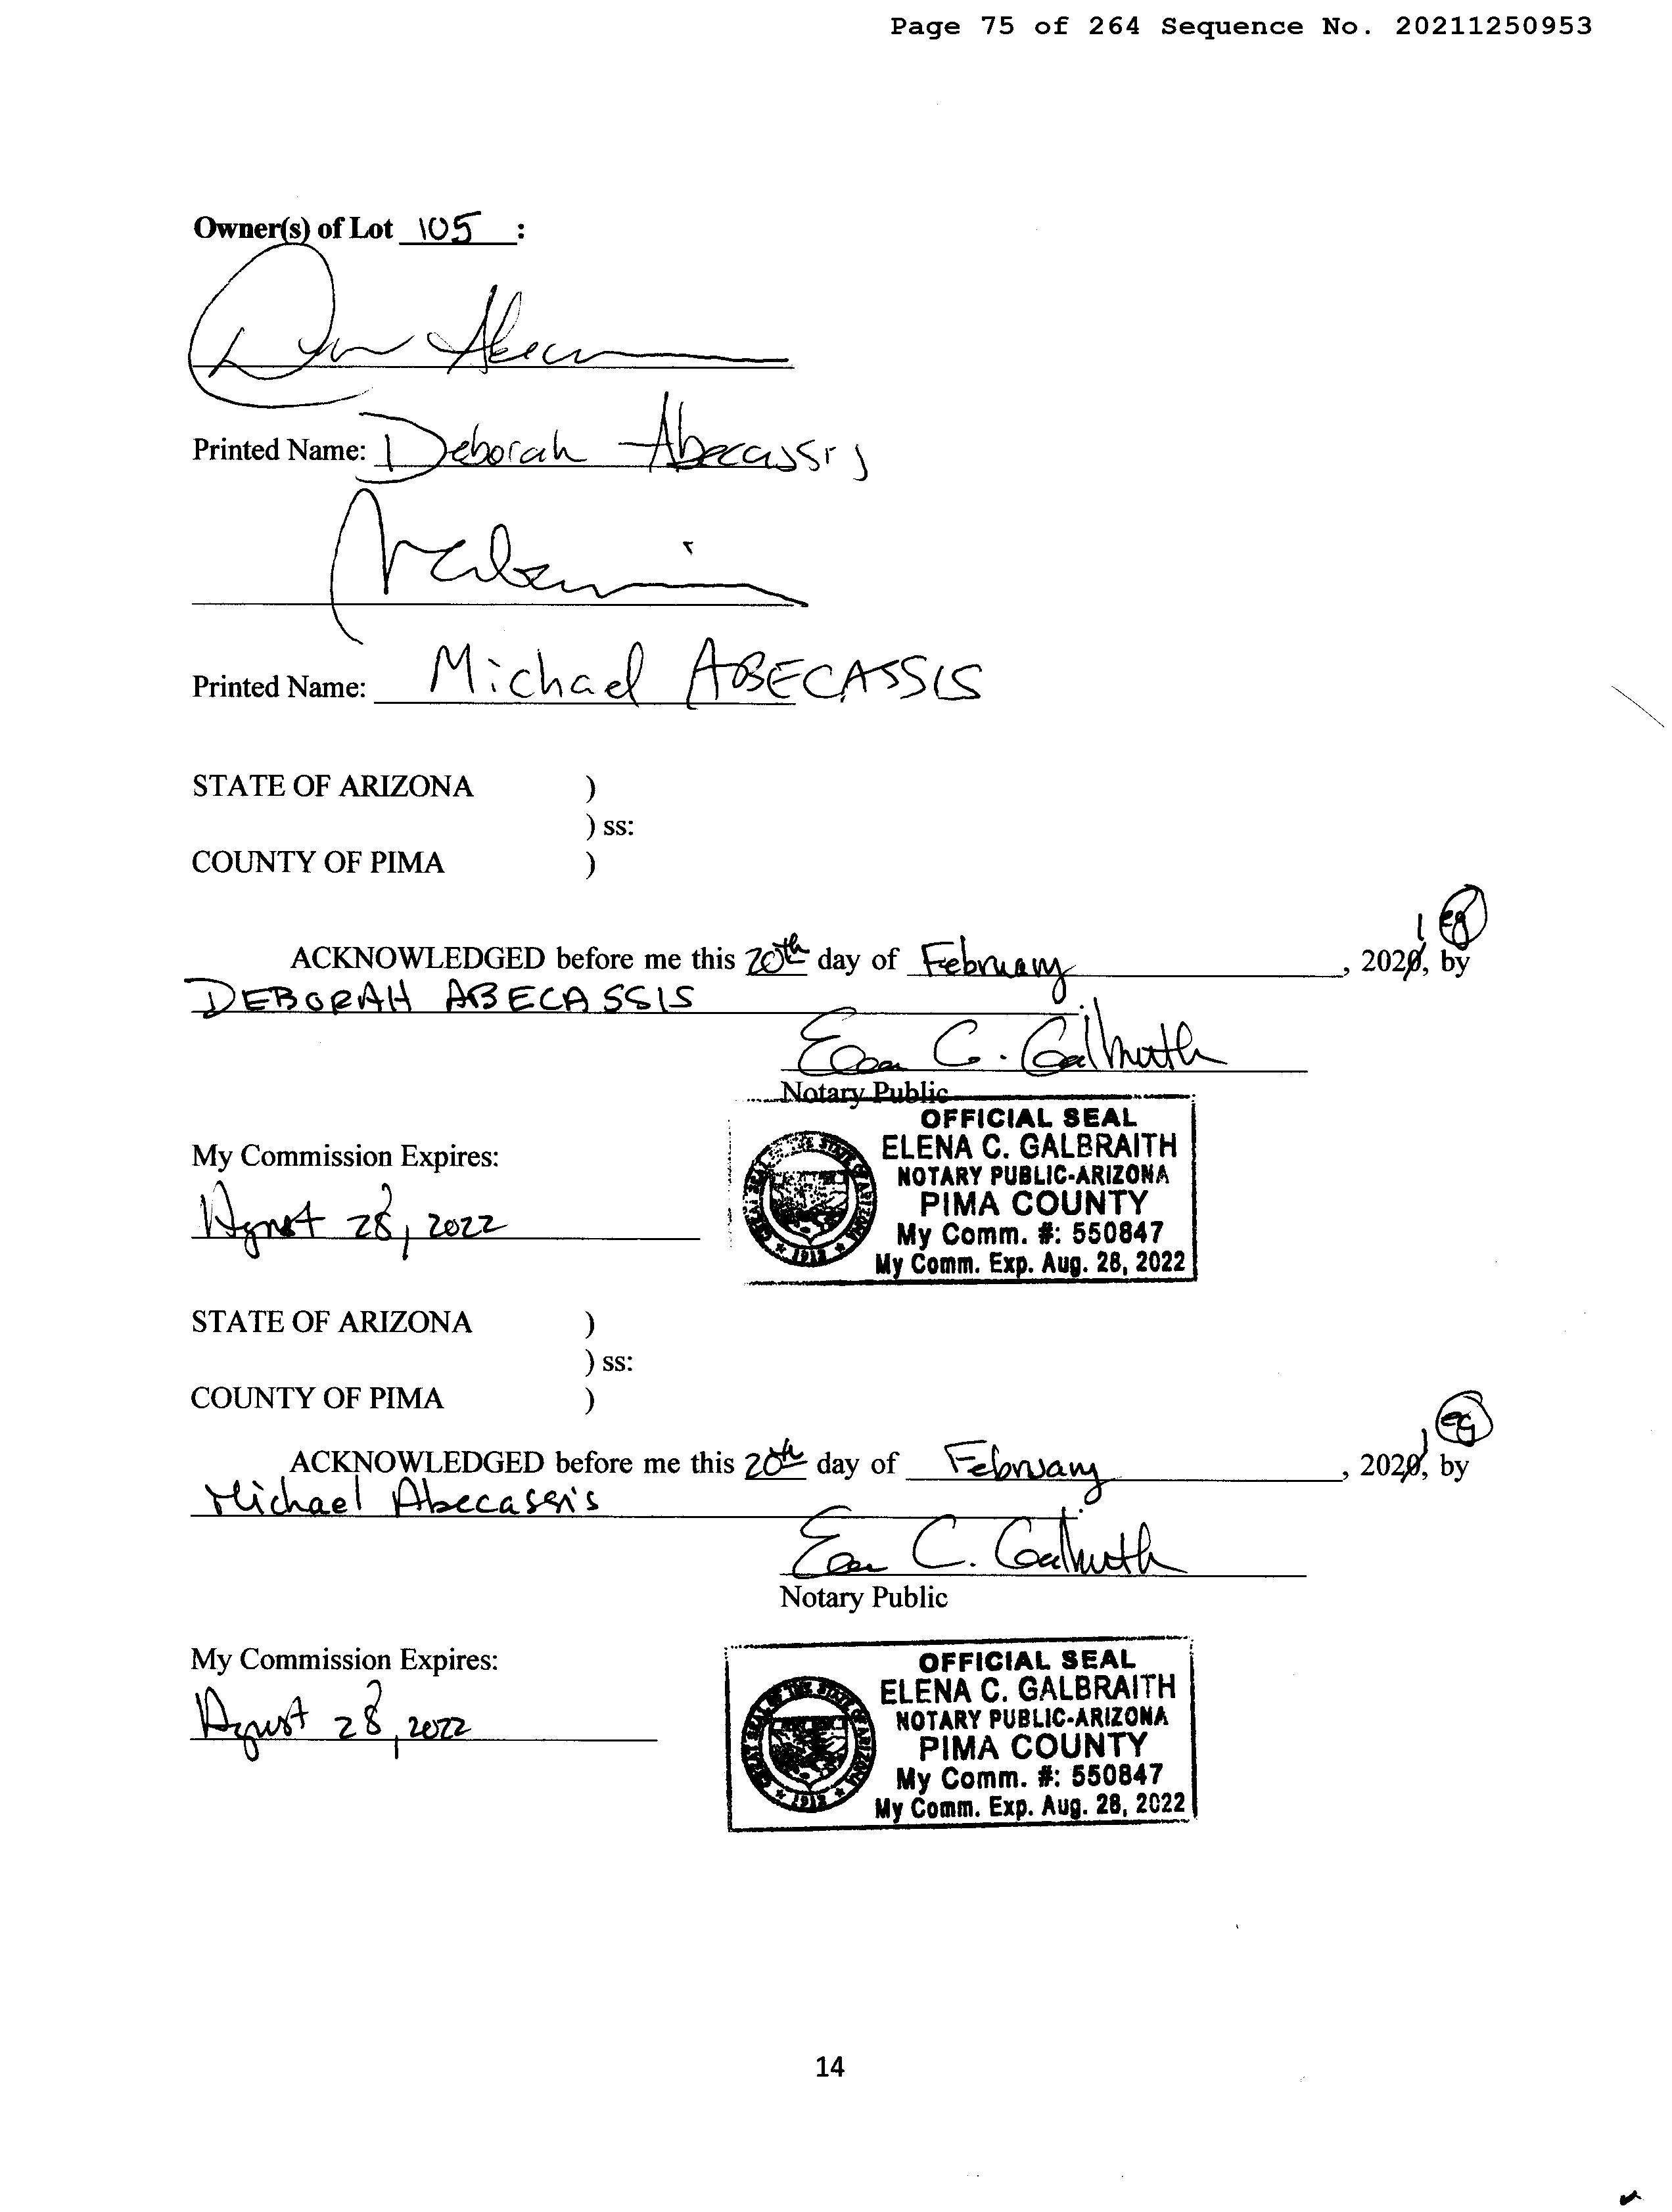 Page 75 of 264 Sequence No. 20211250953
Owner(s) of Lot 105 :
Printed Name: Deborah Abecassis
Printed Name: Michael ABECASSIS
STATE OF ARIZONA )
) ss:
COUNTY OF PIMA )
1 eg
ACKNOWLEDGED before me this 20th day of February, 2020, by
DEBORAH ABECASSIS
Elena C. Galbraith
Notary Public
OFFICIAL SEAL
ELENA C. GALBRAITH
NOTARY PUBLIC-ARIZONA
PIMA COUNTY
My Comm. #: 550847
My Comm. Exp. Aug. 28, 2022
GREAT SEAL OF THE STATE OF ARIZONA
1912
My Commission Expires:
August 28, 2022
STATE OF ARIZONA )
) ss:
COUNTY OF PIMA )
1 eg
ACKNOWLEDGED before me this 20th day of February, 2020, by
Michael Abecassis
Elena C. Galbraith
Notary Public
My Commission Expires:
August 28, 2022
OFFICIAL SEAL
ELENA C. GALBRAITH
NOTARY PUBLIC-ARIZONA
PIMA COUNTY
My Comm. #: 550847
My Comm. Exp. Aug. 28, 2022
GREAT SEAL OF THE STATE OF ARIZONA
1912
14